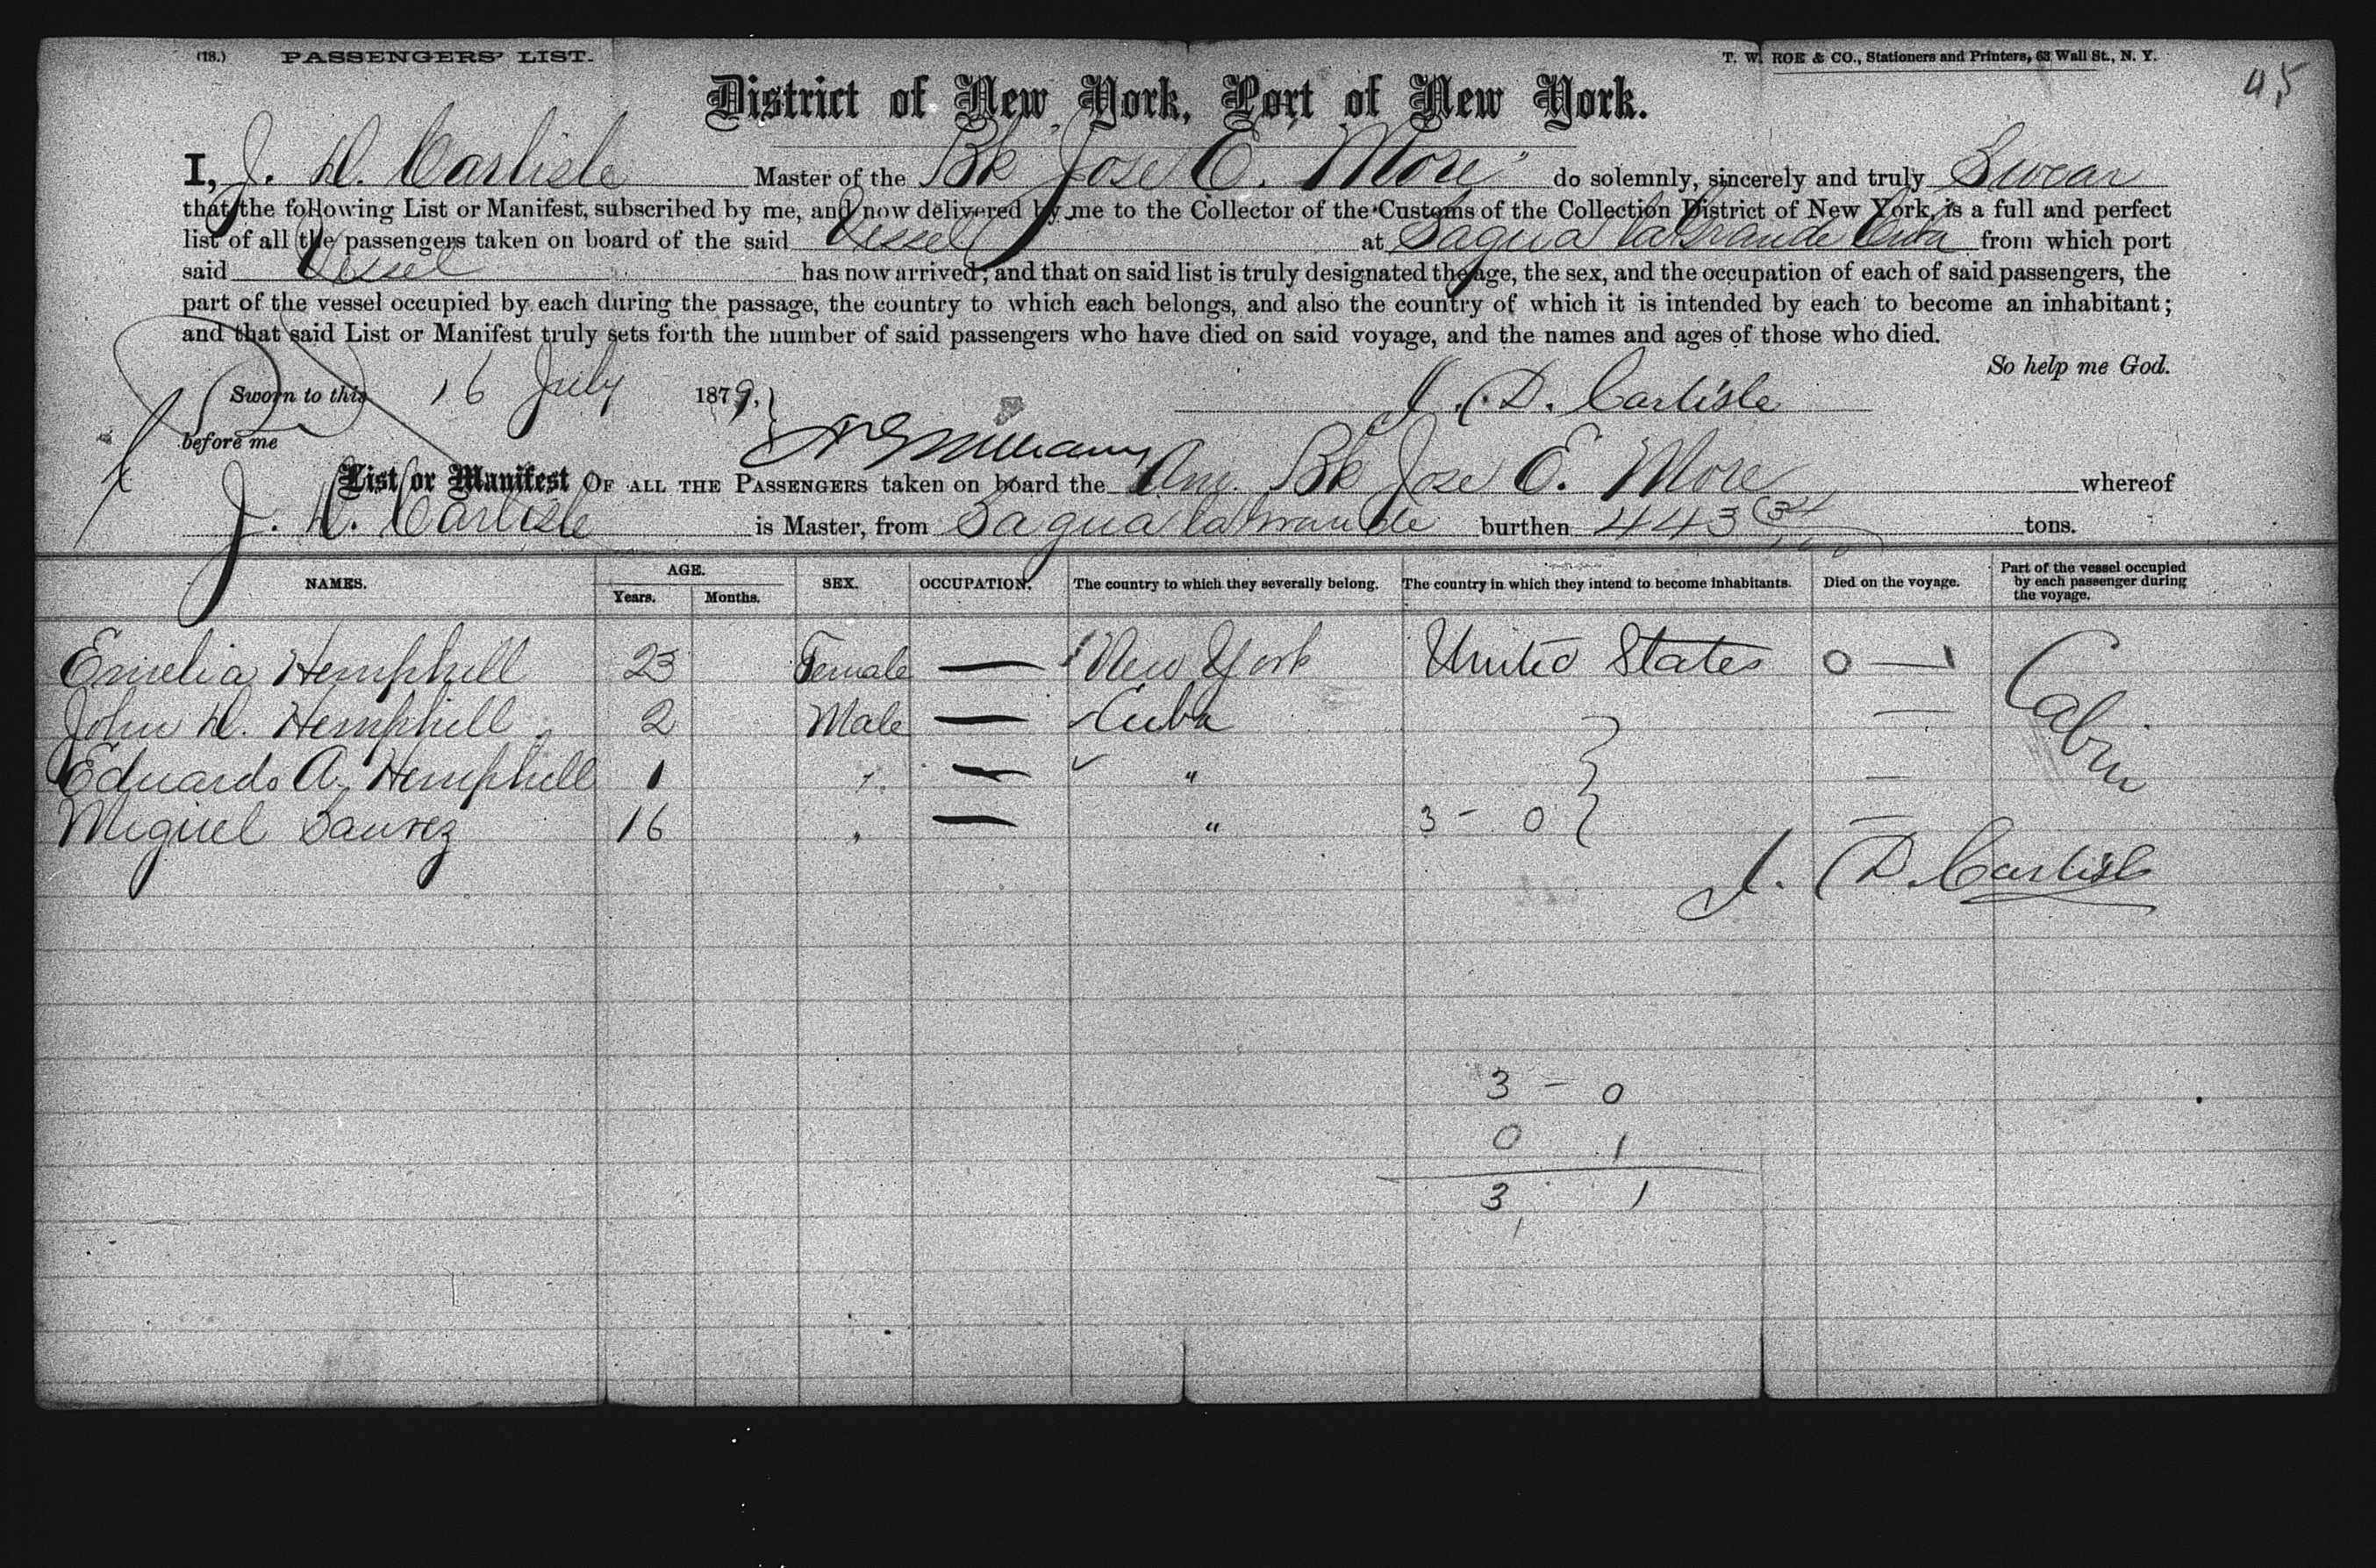 (18.) PASSENGERS' LIST.
T. W. ROE & CO., Stationers and Printers, 63 Wall St., N. Y.
District of New York, Port of New York.
I, J. D. Carlisle Master of the Bk "Jose E. More" do solemnly, sincerely and truly Swear
that the following List or Manifest, subscribed by me, and now delivered by me to the Collector of the Customs of the Collection District of New York, is a full and perfect
list of all the passengers taken on board of the said Vessel at Sagua la Grande Cuba from which port
said Vessel has now arrived; and that on said list is truly designated the age, the sex, and the occupation of each of said passengers, the
part of the vessel occupied by each during the passage, the country to which each belongs, and also the country of which it is intended by each to become an inhabitant;
and that said List or Manifest truly sets forth the number of said passengers who have died on said voyage, and the names and ages of those who died.
So help me God.
Sworn to this 16 July 1879,
J. D. Carlisle
before me
List or Manifest OF ALL THE PASSENGERS taken on board the Am. Bk Jose E. More whereof
J. D. Carlisle is Master, from Sagua la Grande burthen 443 34/100 tons.
NAMES. AGE. Years. Months. SEX. OCCUPATION. The country to which they severally belong. The country in which they intend to become inhabitants. Died on the voyage. Part of the vessel occupied by each passenger during the voyage.
Emelia Hemphill 23 Female — New York United States 0 — 1 Cabin
John D. Hemphill 2 Male — Cuba —
Eduardo A. Hemphill 1 " — " —
Miguel Saurez 16 " — " 3 - 0 —
J. D. Carlisle
3 - 0
0 1
3 1